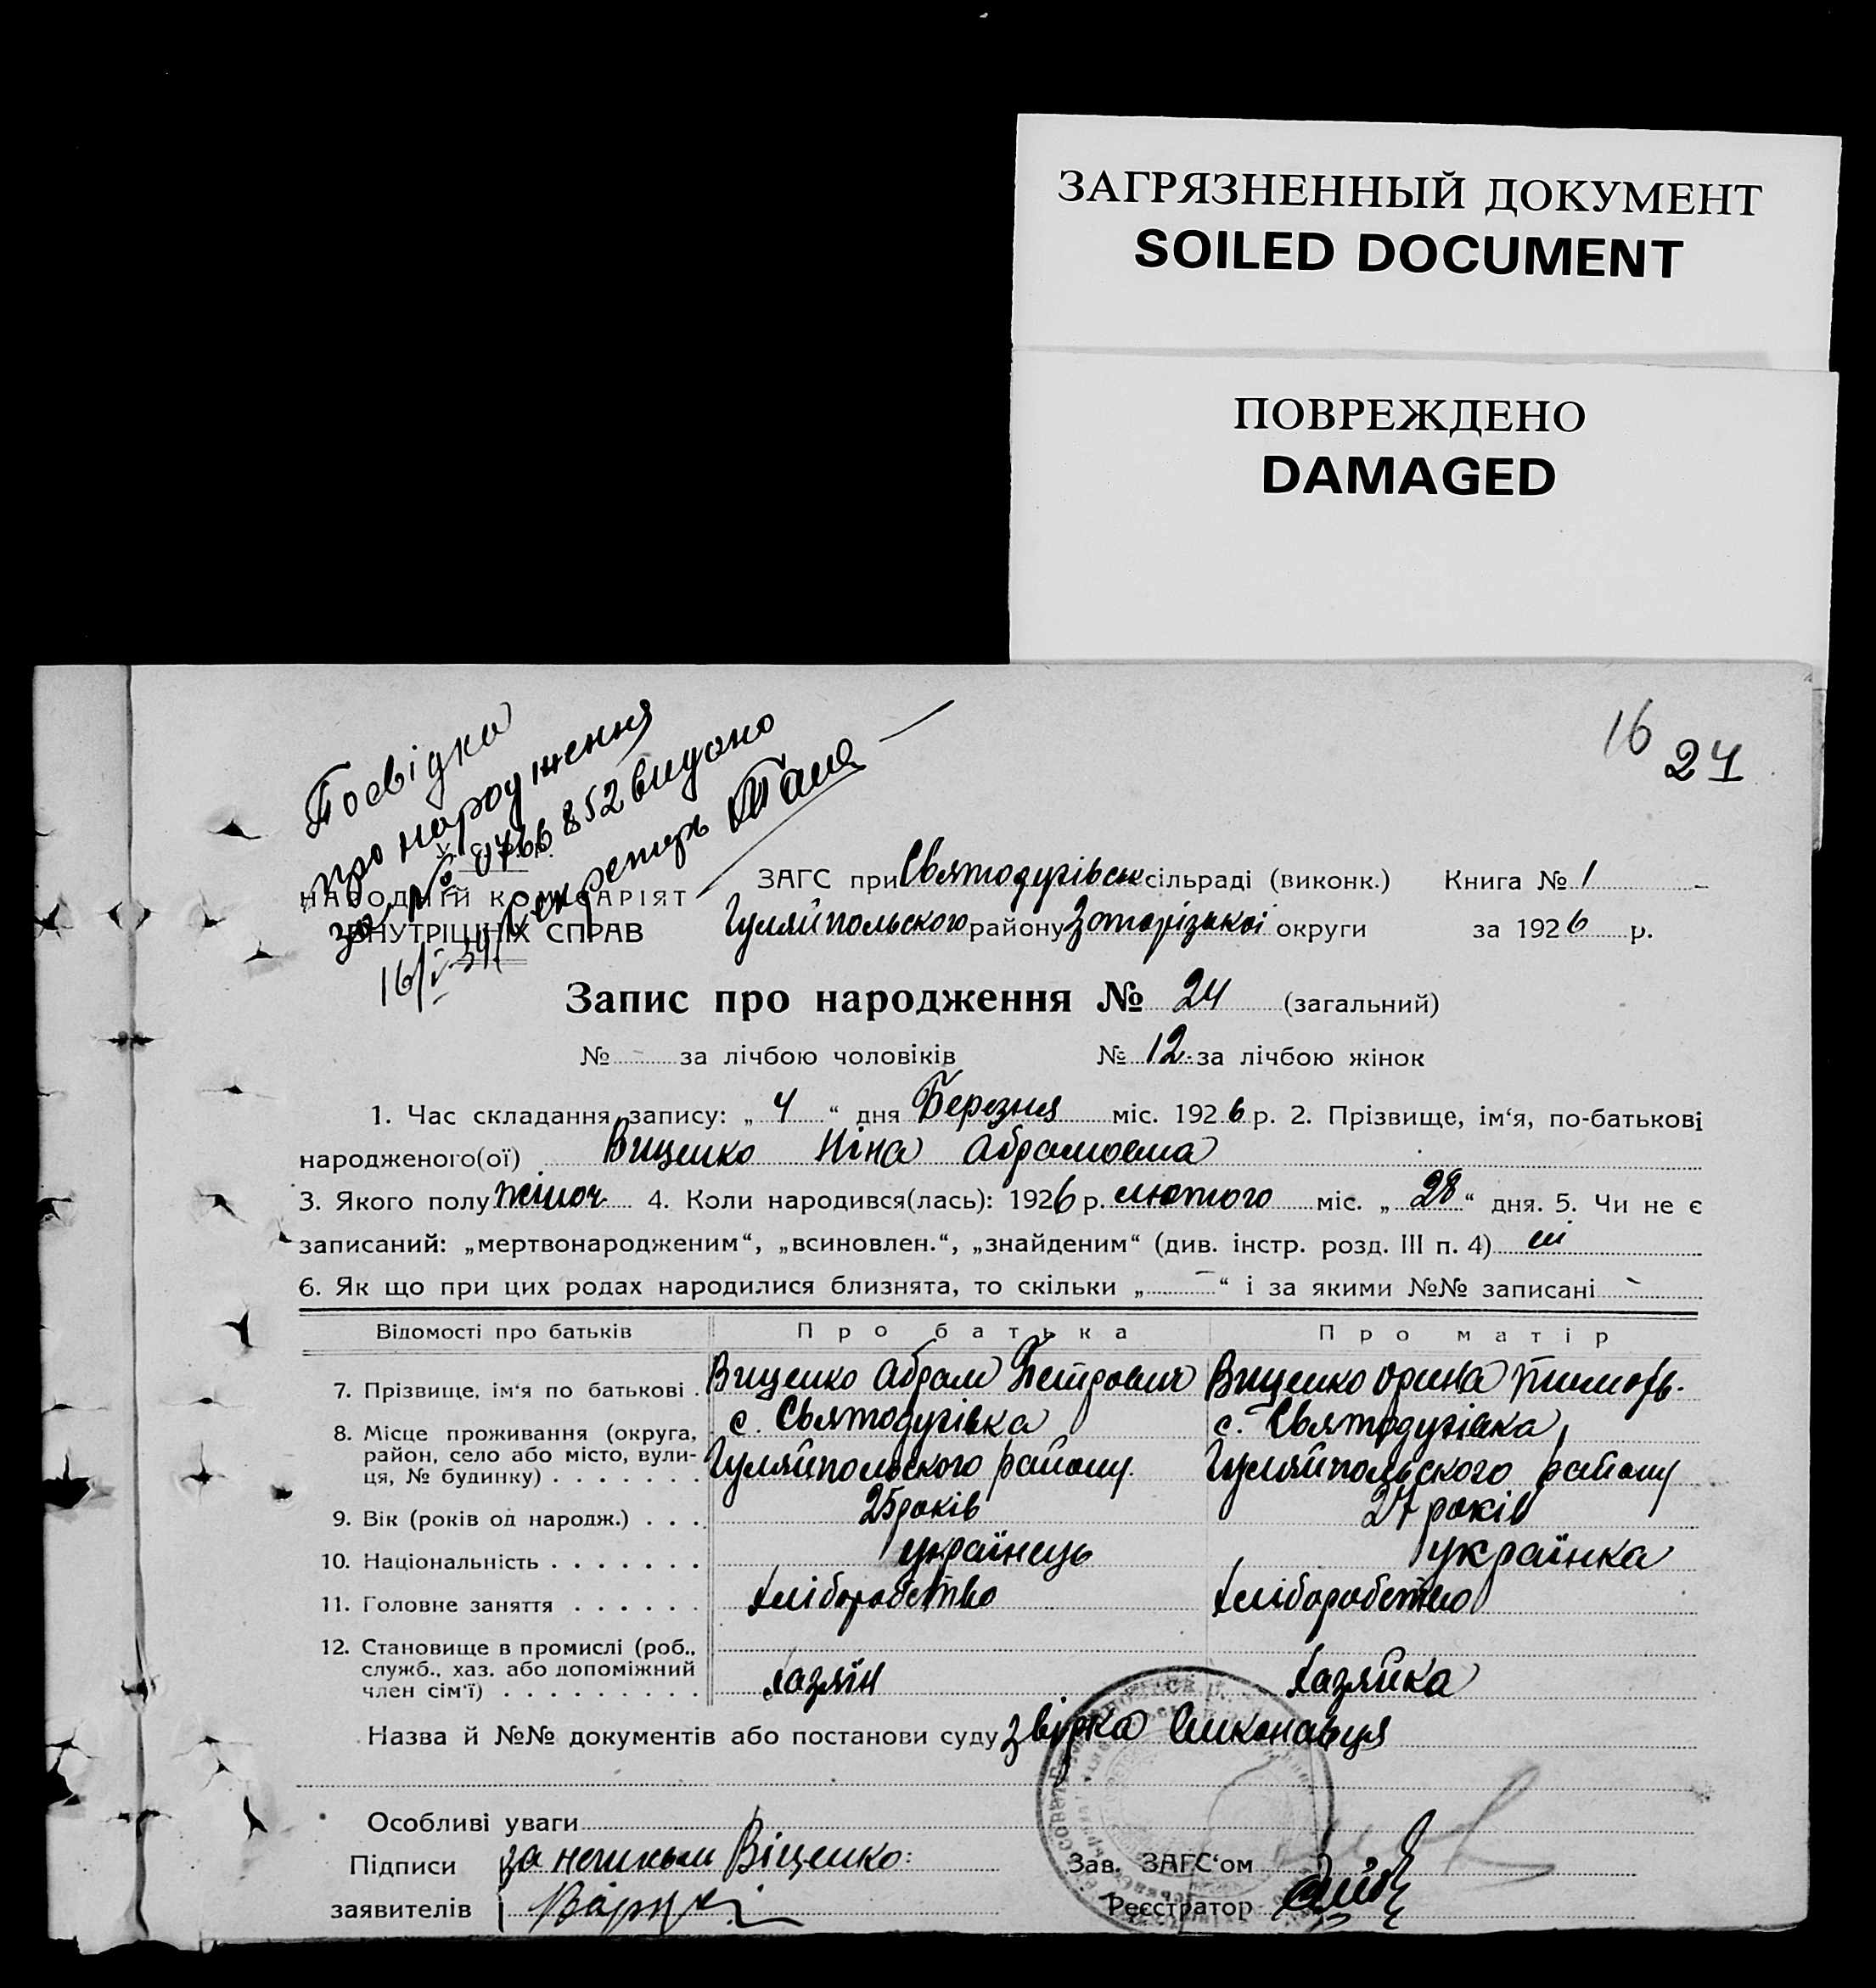 ЗАГРЯЗНЕННЫЙ ДОКУМЕНТ
SOILED DOCUMENT
ПОВРЕЖДЕНО
DAMAGED
16
24
Посвідка
про народження
за № 0766 852 видано
16/V 34 Секретарь
НАРОДНІЙ КОМІСАРІЯТ
ВНУТРІШНІХ СПРАВ
ЗАГС при Святодухівськ сільраді (виконк.) Книга № 1
Гуляйпольского району Запорізької округи за 1926 р.
Запис про народження № 24 (загальний)
№ за лічбою чоловіків № 12 за лічбою жінок
1. Час складання запису: „ 4 “ дня Березня міс. 1926 р. 2. Прізвище, ім‘я, по-батькові
народженого(ої) Вищенко Ніна Абрамовна
3. Якого полу жіноч 4. Коли народився(лась): 1926 р. лютого міс. „ 28 “ дня. 5. Чи не є
записаний: „мертвонародженим“, „всиновлен.“, „знайденим“ (див. інстр. розд. III п. 4) ні
6. Як що при цих родах народилися близнята, то скільки „ - “ і за якими №№ записані -
Відомості про батьків Про батька Про матір
7. Прізвище, ім‘я по батькові . Вищенко Абрам Петрович Вищенко Орина Тимофь.
8. Місце проживання (округа, с. Святодухівка с. Святодухівка,
район, село або місто, вули- Гуляйпольского району. Гуляйпольского району
ця, № будинку) . . . . . . .
9. Вік (років од народж.) . . . 25 років 27 років
10. Національність . . . . . . . українець українка
11. Головне заняття . . . . . . хліборобство хліборобство
12. Становище в промислі (роб.,
служб., хаз. або допоміжний хазяїн хазяйка
член сім‘ї) . . . . . . . . .
Назва й №№ документів або постанови суду звірка виконавця
Особливі уваги
Підписи за неписьм Віценко: Зав. ЗАГС‘ом
заявителів Реєстратор